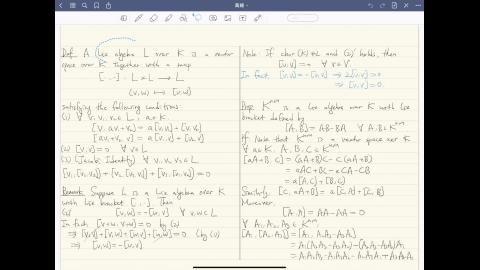 Def. A Lie algebra L over K is a vector
space over K together with a map
[.,.] : L × L → L
(v,w) ↦ [v,w]
satisfying the following conditions:
(1) ∀ v, v₁, v₂ ∈ L, a ∈ K,
[v, av₁+v₂] = a[v,v₁]+[v,v₂]
[av₁+v₂, v] = a[v₁,v]+[v₂,v]
(2) [v,v] = 0 ∀ v ∈ L
(3) (Jacobi Identity) ∀ v₁, v₂, v₃ ∈ L,
[v₁,[v₂,v₃]]+[v₂,[v₃,v₁]]+[v₃,[v₁,v₂]] = 0
Remark. Suppose L is a Lie algebra over K
with Lie bracket [.,.]. Then
[v,w] = -[w,v] ∀ v,w ∈ L
In fact, [v+w, v+w] = 0 by (2)
⇒ [v,v]+[v,w]+[w,v]+[w,w] = 0 (by (1))
⇒ [v,w] = -[w,v].
Note: If char(K) ≠ 2 and (2)' holds, then
[v,v] = 0 ∀ v ∈ V.
In fact, [v,v] = -[v,v] ⇒ 2[v,v] = 0
⇒ [v,v] = 0.
Prop. Kⁿˣⁿ is a Lie algebra over K with Lie
bracket defined by
[A,B] = AB-BA ∀ A,B ∈ Kⁿˣⁿ
Pf. Note that Kⁿˣⁿ is a vector space over K
∀ a ∈ K, A, B, C ∈ Kⁿˣⁿ
[aA+B, C] = (aA+B)C - C(aA+B)
= aAC+BC - aCA-CB
= a[A,C]+[B,C]
Similarly, [C, aA+B] = a[C,A]+[C,B]
Moreover,
[A,A] = AA-AA = 0
∀ A₁, A₂, A₃ ∈ Kⁿˣⁿ
[A₁,[A₂,A₃]] = [A₁, A₂A₃-A₃A₂]
= A₁(A₂A₃-A₃A₂)-(A₂A₃-A₃A₂)A₁
= A₁A₂A₃-A₁A₃A₂-A₂A₃A₁+A₃A₂A₁